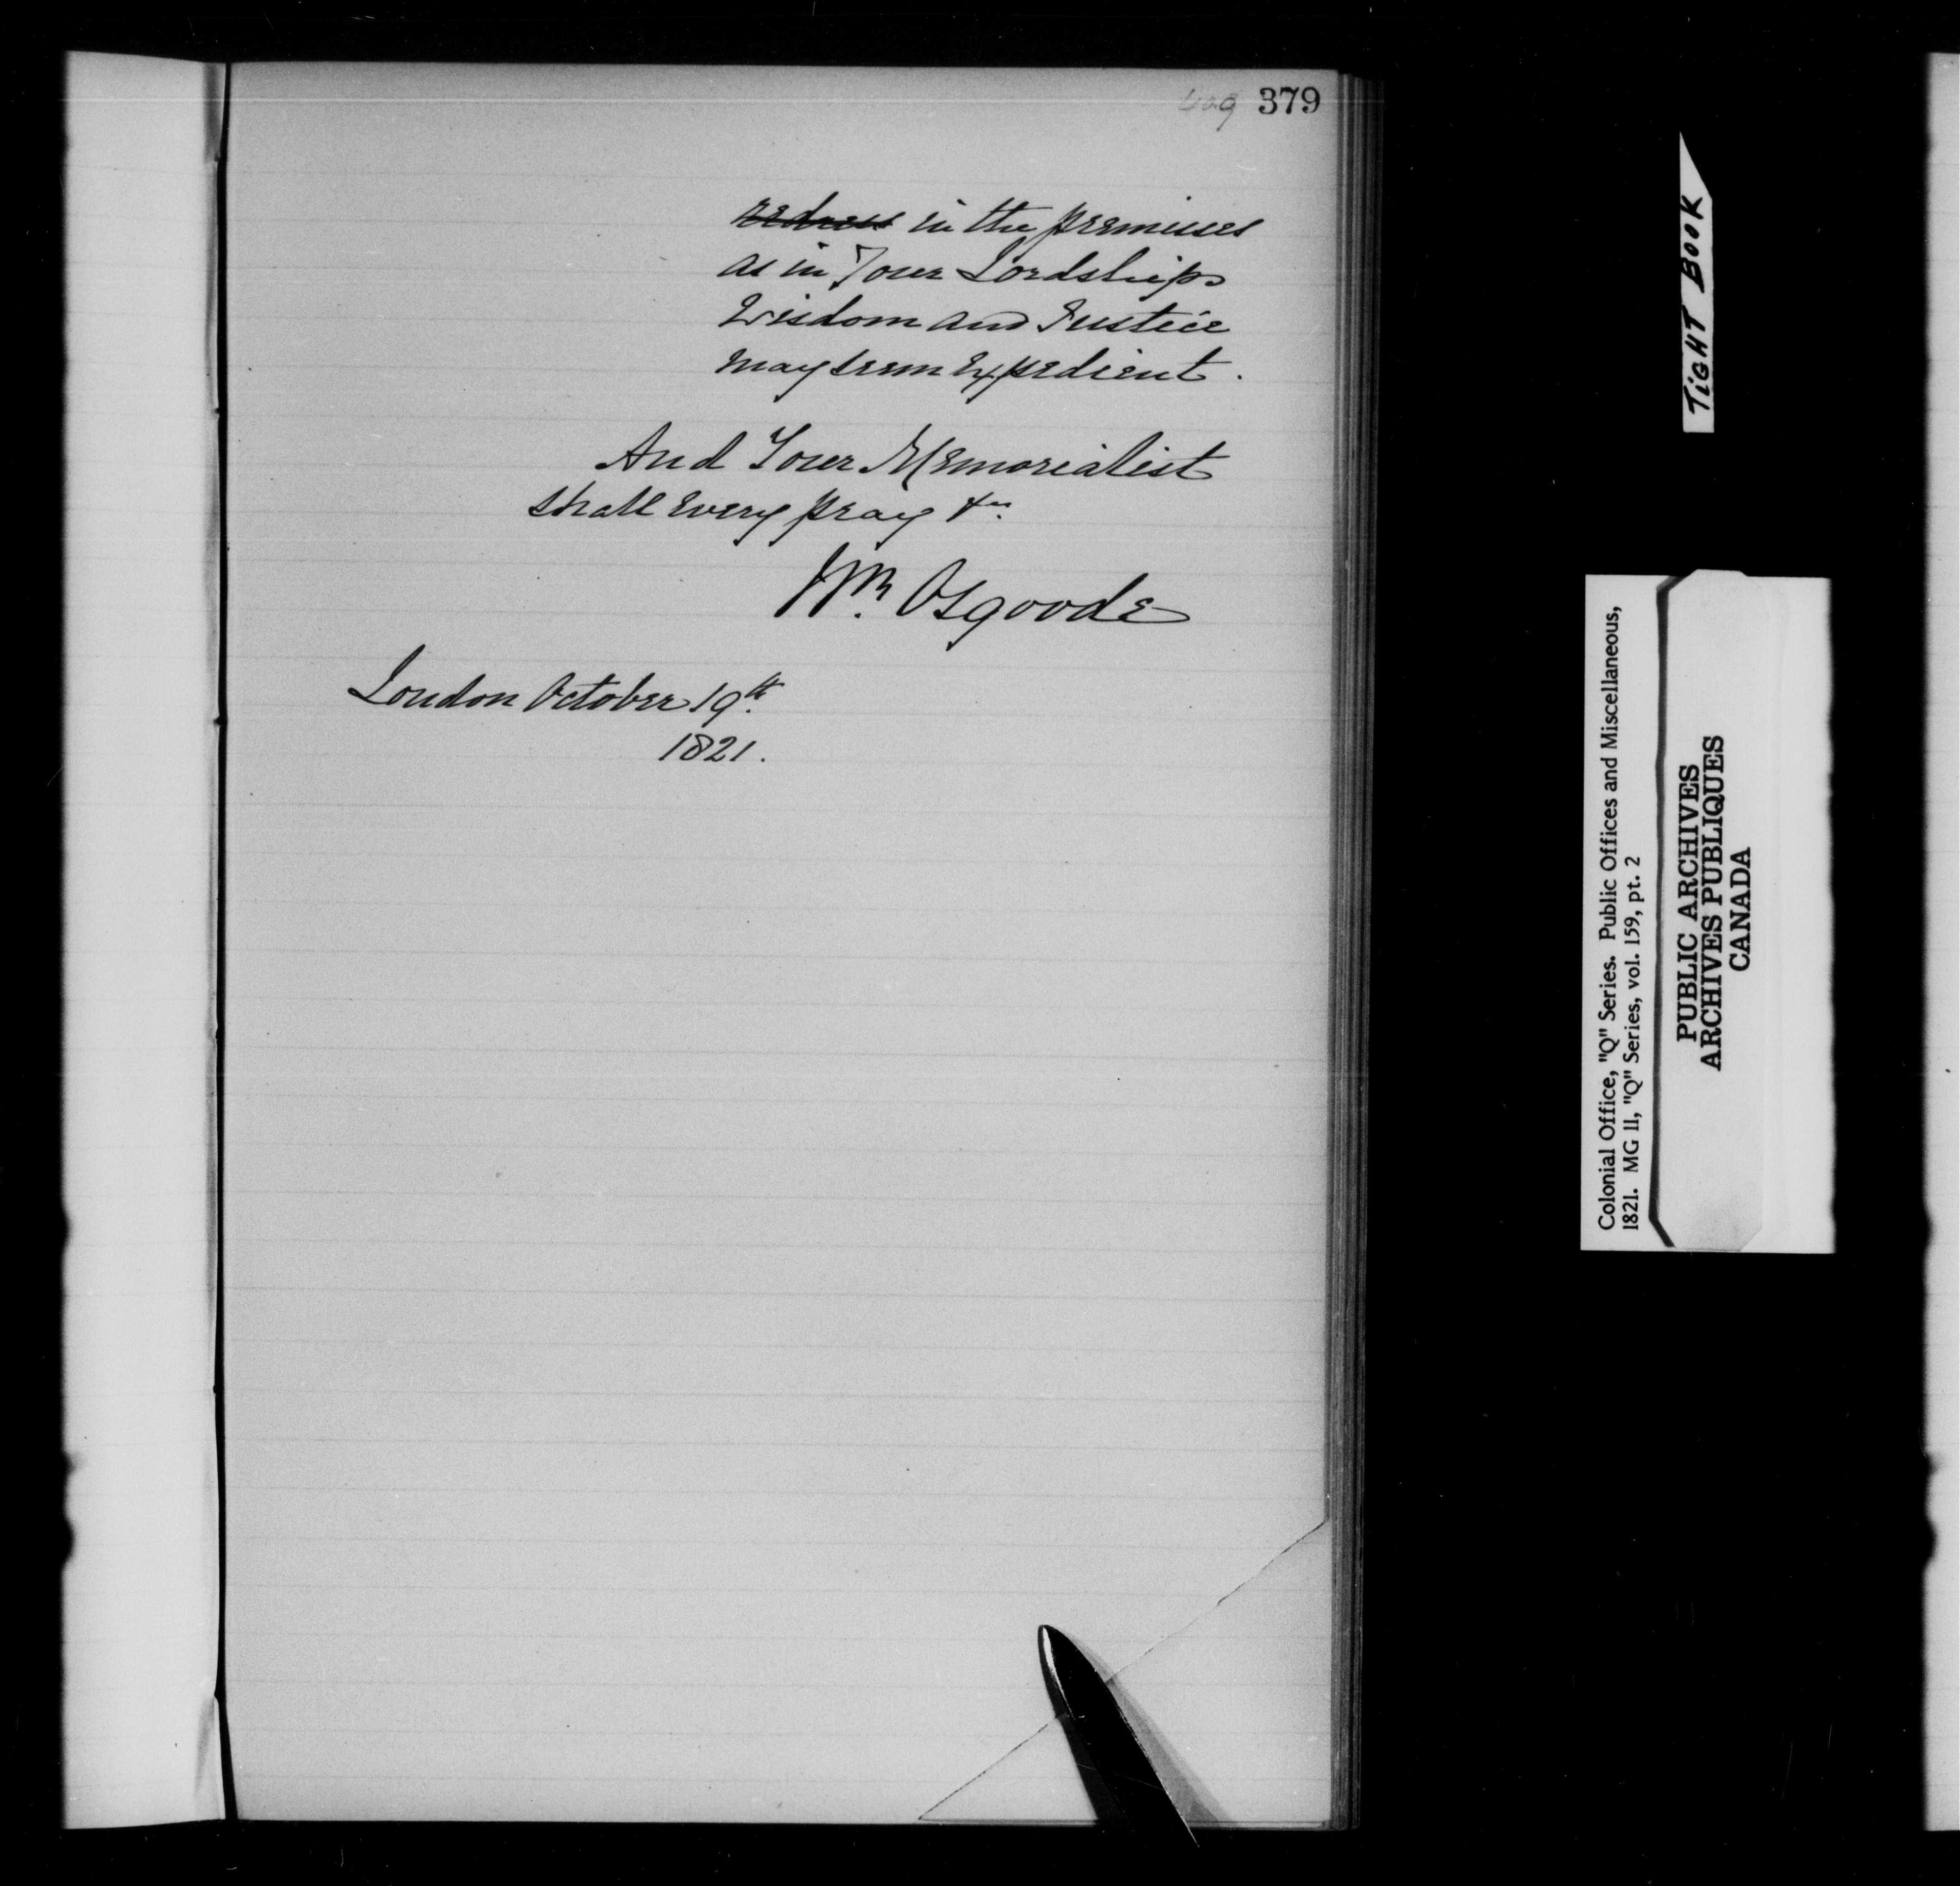 379
~~redress~~ in the premisses
as in Your Lordships
Wisdom and Justice
may seem Expedient.
And Your Memorialist
shall Every pray &c.
Wm. Osgoode
London October 19th.
1821.
TIGHT BOOK
Colonial Office, "Q" Series. Public Offices and Miscellaneous,
1821. MG 11, "Q" Series, vol. 159, pt. 2
PUBLIC ARCHIVES
ARCHIVES PUBLIQUES
CANADA